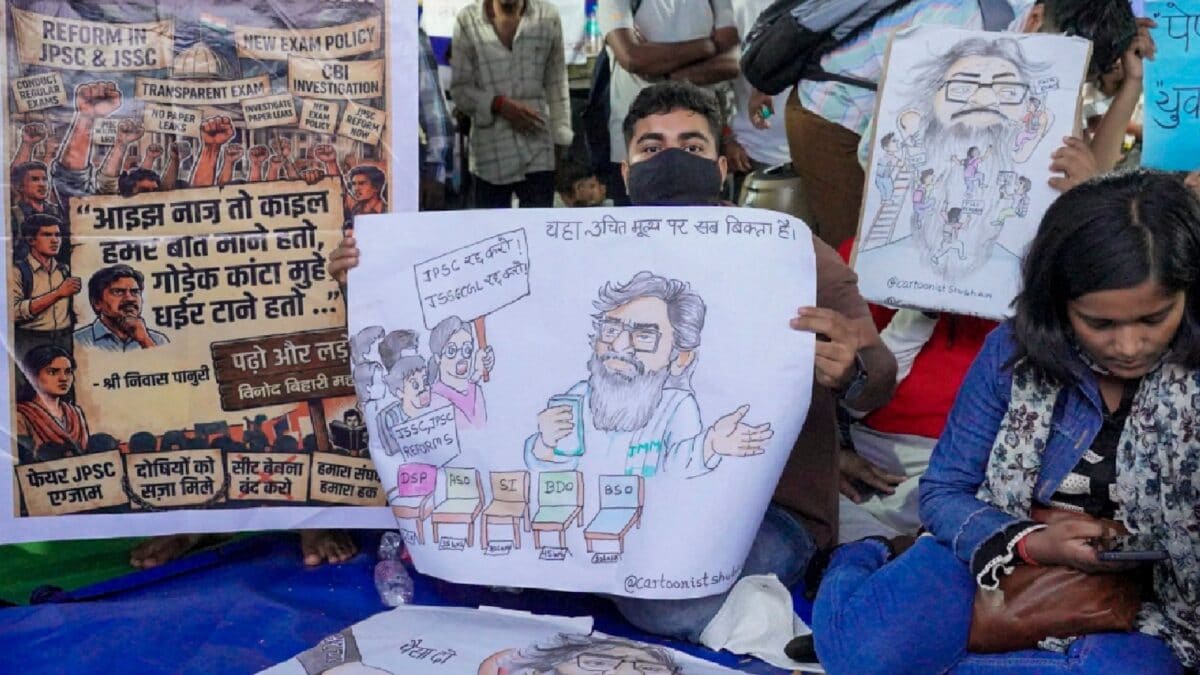 REFORM IN
JPSC & JSSC
NEW EXAM POLICY
CONDUCT
REGULAR
EXAMS
TRANSPARENT EXAM
CBI
INVESTIGATION
NO PAPER
LEAKS
INVESTIGATE
PAPER LEAKS
NEW EXAM
POLICY
JPSC
REFORM
NOW
"आइझ नाज़ तो काइल
हमर बात माने हतो,
गोड़ेक कांटा मुहे
धईर टाने हतो ..."
- श्री निवास पानुरी
पढ़ो और लड़ो
विनोद बिहारी
फेयर JPSC
एग्जाम
दोषियों को
सज़ा मिले
सीट बेचना
बंद करो
हमारा
हमारा हक
यहा उचित मूल्य पर सब बिकता है।
JPSC रद्द करो!
JSSCCGL रद्द करो!
JSSC, JPSC
REFORMS
JMM
DSP
ASO
SI
BDO
BSO
@cartoonistshu
@cartoonistshubham
पैसा दो